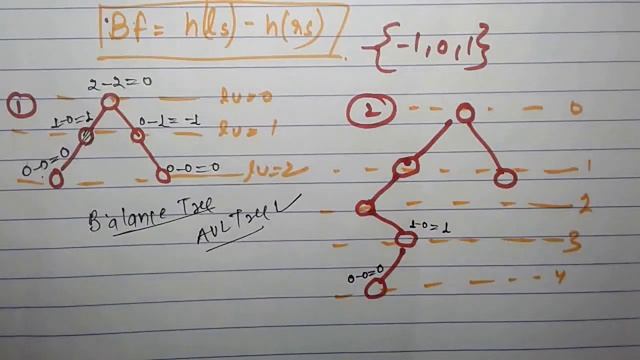 Bf = h(ls) - h(rs)
{-1, 0, 1}
1
2-2=0
lv=0
1-0=1
0-1=-1
lv=1
0-0=0
0-0=0
lv=2
Balance Tree
AVL Tree ✓
2
0
1
2
1-0=1
3
0-0=0
4